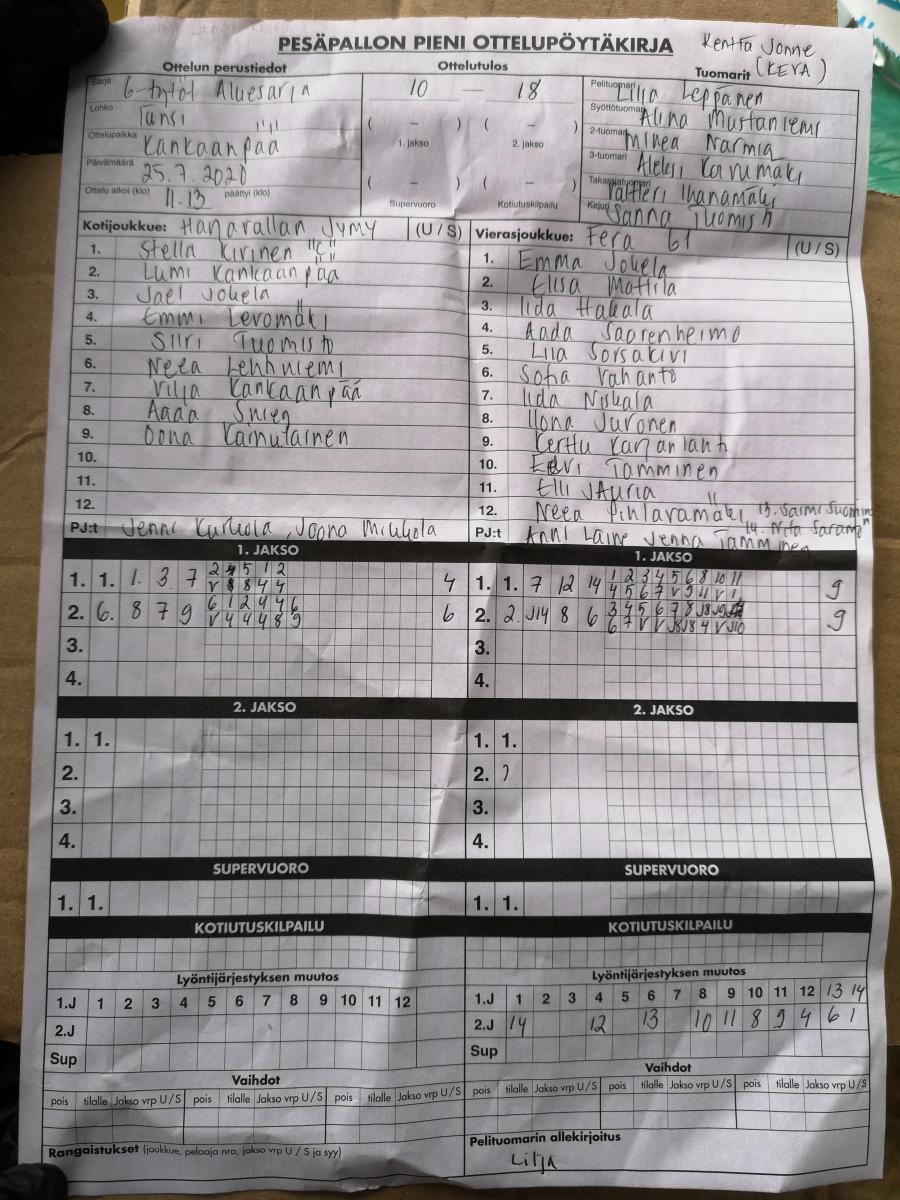 PESÄPALLON PIENI OTTELUPÖYTÄKIRJA
Kenttä Jonne
(KEVA)
Ottelun perustiedot
Ottelutulos
Tuomarit
Sarja G-tytöt Aluesarja
Lohko Länsi
Ottelupaikka Kankaanpää
Päivämäärä 25.7.2020
Ottelu alkoi (klo) 11.13 päättyi (klo)
10 — 18
( – ) ( – )
1. jakso 2. jakso
( – ) ( – )
Supervuoro Kotiutuskilpailu
Pelituomari Lilja Leppänen
Syöttötuomari Alina Mustaniemi
2-tuomari Minea Narmia
3-tuomari Aleksi Karumäki
Takarajatuomari Valtteri Ihanamäki
Kirjuri Sanna Tuomisto
Kotijoukkue: Hanjarallan Jymy (U / S)
1. Stella Kirinen "C"
2. Lumi Kankaanpää
3. Jael Jokela
4. Emmi Levomäki
5. Siiri Tuomisto
6. Neea Lehtiniemi
7. Vilja Kankaanpää
8. Aada
9. Oona Kainulainen
10.
11.
12.
PJ:t Jenni Kurkola, Joona Mikkola
Vierasjoukkue: Fera G1 (U / S)
1. Emma Jokela
2. Elisa Mattila
3. Iida Hakala
4. Aada Saarenheimo
5. Liia Sorsakivi
6. Sofia Vahanto
7. Iida Niskala
8. Ilona Juronen
9. Kerttu Karjanlahti
10. Eevi Tamminen
11. Elli
12. Neea Pihlavamäki 13. Saimi Suominen
14. Nita
PJ:t Anni Laine Jenna Tamminen
1. JAKSO
1. 1. 1. 3 7 2 4 5 1 2 4
V 8 8 4 4
2. 6. 8 7 9 6 1 2 4 4 6 6
V 4 4 4 8 9
3.
4.
1. JAKSO
1. 1. 7 12 14 1 2 3 4 5 6 8 10 11 9
4 5 6 7 V 9 4 V 1
2. 2. J14 8 6 3 4 5 6 7 8 J8 J9 9
6 7 V V J8 J8 4 V J10
3.
4.
2. JAKSO
1. 1.
2.
3.
4.
2. JAKSO
1. 1.
2.
3.
4.
SUPERVUORO
1. 1.
SUPERVUORO
1. 1.
KOTIUTUSKILPAILU
KOTIUTUSKILPAILU
Lyöntijärjestyksen muutos
1.J 1 2 3 4 5 6 7 8 9 10 11 12
2.J
Sup
Lyöntijärjestyksen muutos
1.J 1 2 3 4 5 6 7 8 9 10 11 12 13 14
2.J 14 12 13 10 11 8 9 4 6 1
Sup
Vaihdot
pois tilalle Jakso vrp U / S pois tilalle Jakso vrp U / S pois tilalle Jakso vrp U / S
Vaihdot
pois tilalle Jakso vrp U / S pois tilalle Jakso vrp U / S pois tilalle Jakso vrp U / S
Rangaistukset (joukkue, pelaaja nro, jakso vrp U / S ja syy)
Pelituomarin allekirjoitus
Lilja